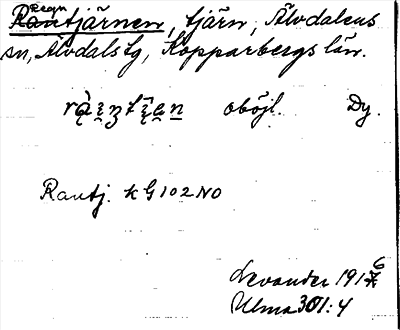 Regn
Rantjärnen, tjärn, Älvdalens
sn, Älvdals tg, Kopparbergs län.
oböjl. Dy.
Rantj. k G 102 NO
Levander 1916
Ulma 301:4